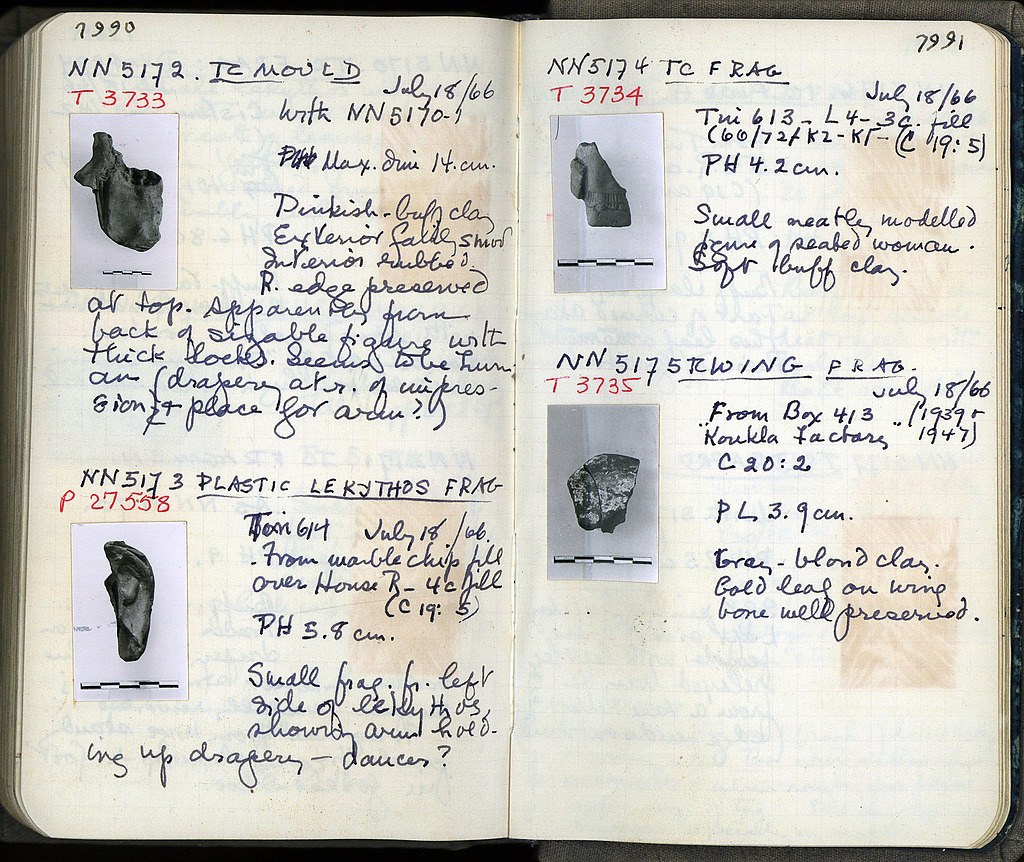 7990
NN 5172. TC MOULD
T 3733
July 18/66
With NN 5170-1
Max. dim 14 cm.
Pinkish-buff clay
Exterior fairly smooth
Interior rubbed.
R. edge preserved
at top. Apparently from
back of sizable figure with
thick locks. Seems to be hum
an (drapery at r. of impres-
sion & place for arm?)
NN 5173 PLASTIC LEKYTHOS FRAG
P 27558
Tin 614 July 18/66.
From marble chip fill
over House R - 4c fill
(C 19:5)
PH 5.8 cm.
Small frag. fr. left
side of lekythos,
showing arm hold-
ing up drapery - dancer?
7991
NN 5174 TC FRAG
T 3734
July 18/66
Tin 613 - L4-3c. fill
(60/72/K2-K1- (C 19:5)
PH 4.2 cm.
Small neatly modelled
figure of seated woman.
Soft buff clay.
NN 5175 WING FRAG.
T 3735
July 18/66
From Box 413 (1939+
"Koukla Factory" 1947)
C 20:2
PL 3.9 cm.
Gray-blond clay.
Gold leaf on wing
bone well preserved.